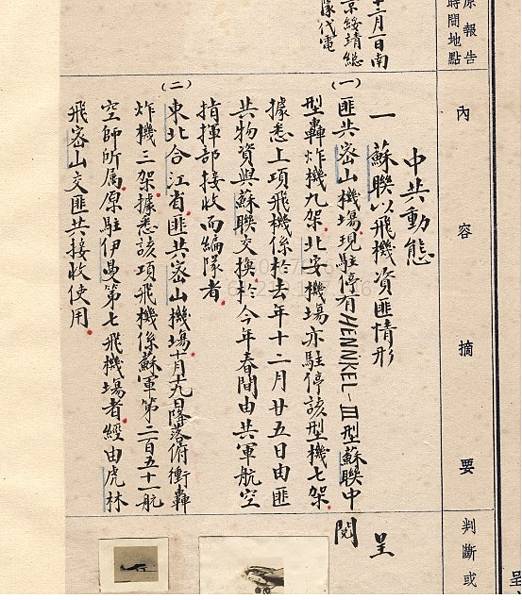 原報告
時間地點
十二月一日南
京綏靖總
隊代電
內容摘要
中共動態
一 蘇聯以飛機資匪情形
(一)匪共密山機場現駐停有HENNKEL-III型蘇聯中
型轟炸機九架北安機場亦駐停該型機七架
據悉上項飛機係於去年十二月廿五日由匪
共物資與蘇聯交換於今年春間由共軍航空
指揮部接收而編隊者
(二)東北合江省匪共密山機場十月十九日降落俯衝轟
炸機三架據悉該項飛機係蘇軍第二百五十一航
空師所屬原駐伊曼第七飛機場者經由虎林
飛密山交匪共接收使用
判斷或
呈
閱